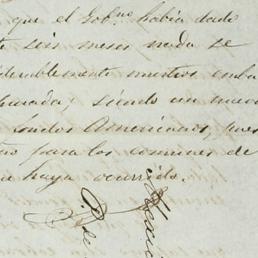 que el Gob.no habia dado
seis meses nada se
derablemente nuestros emba
sando un nuevo
fondos Americanos, pues
para los comunes de
haya ocurrido.
Mexic
P. de